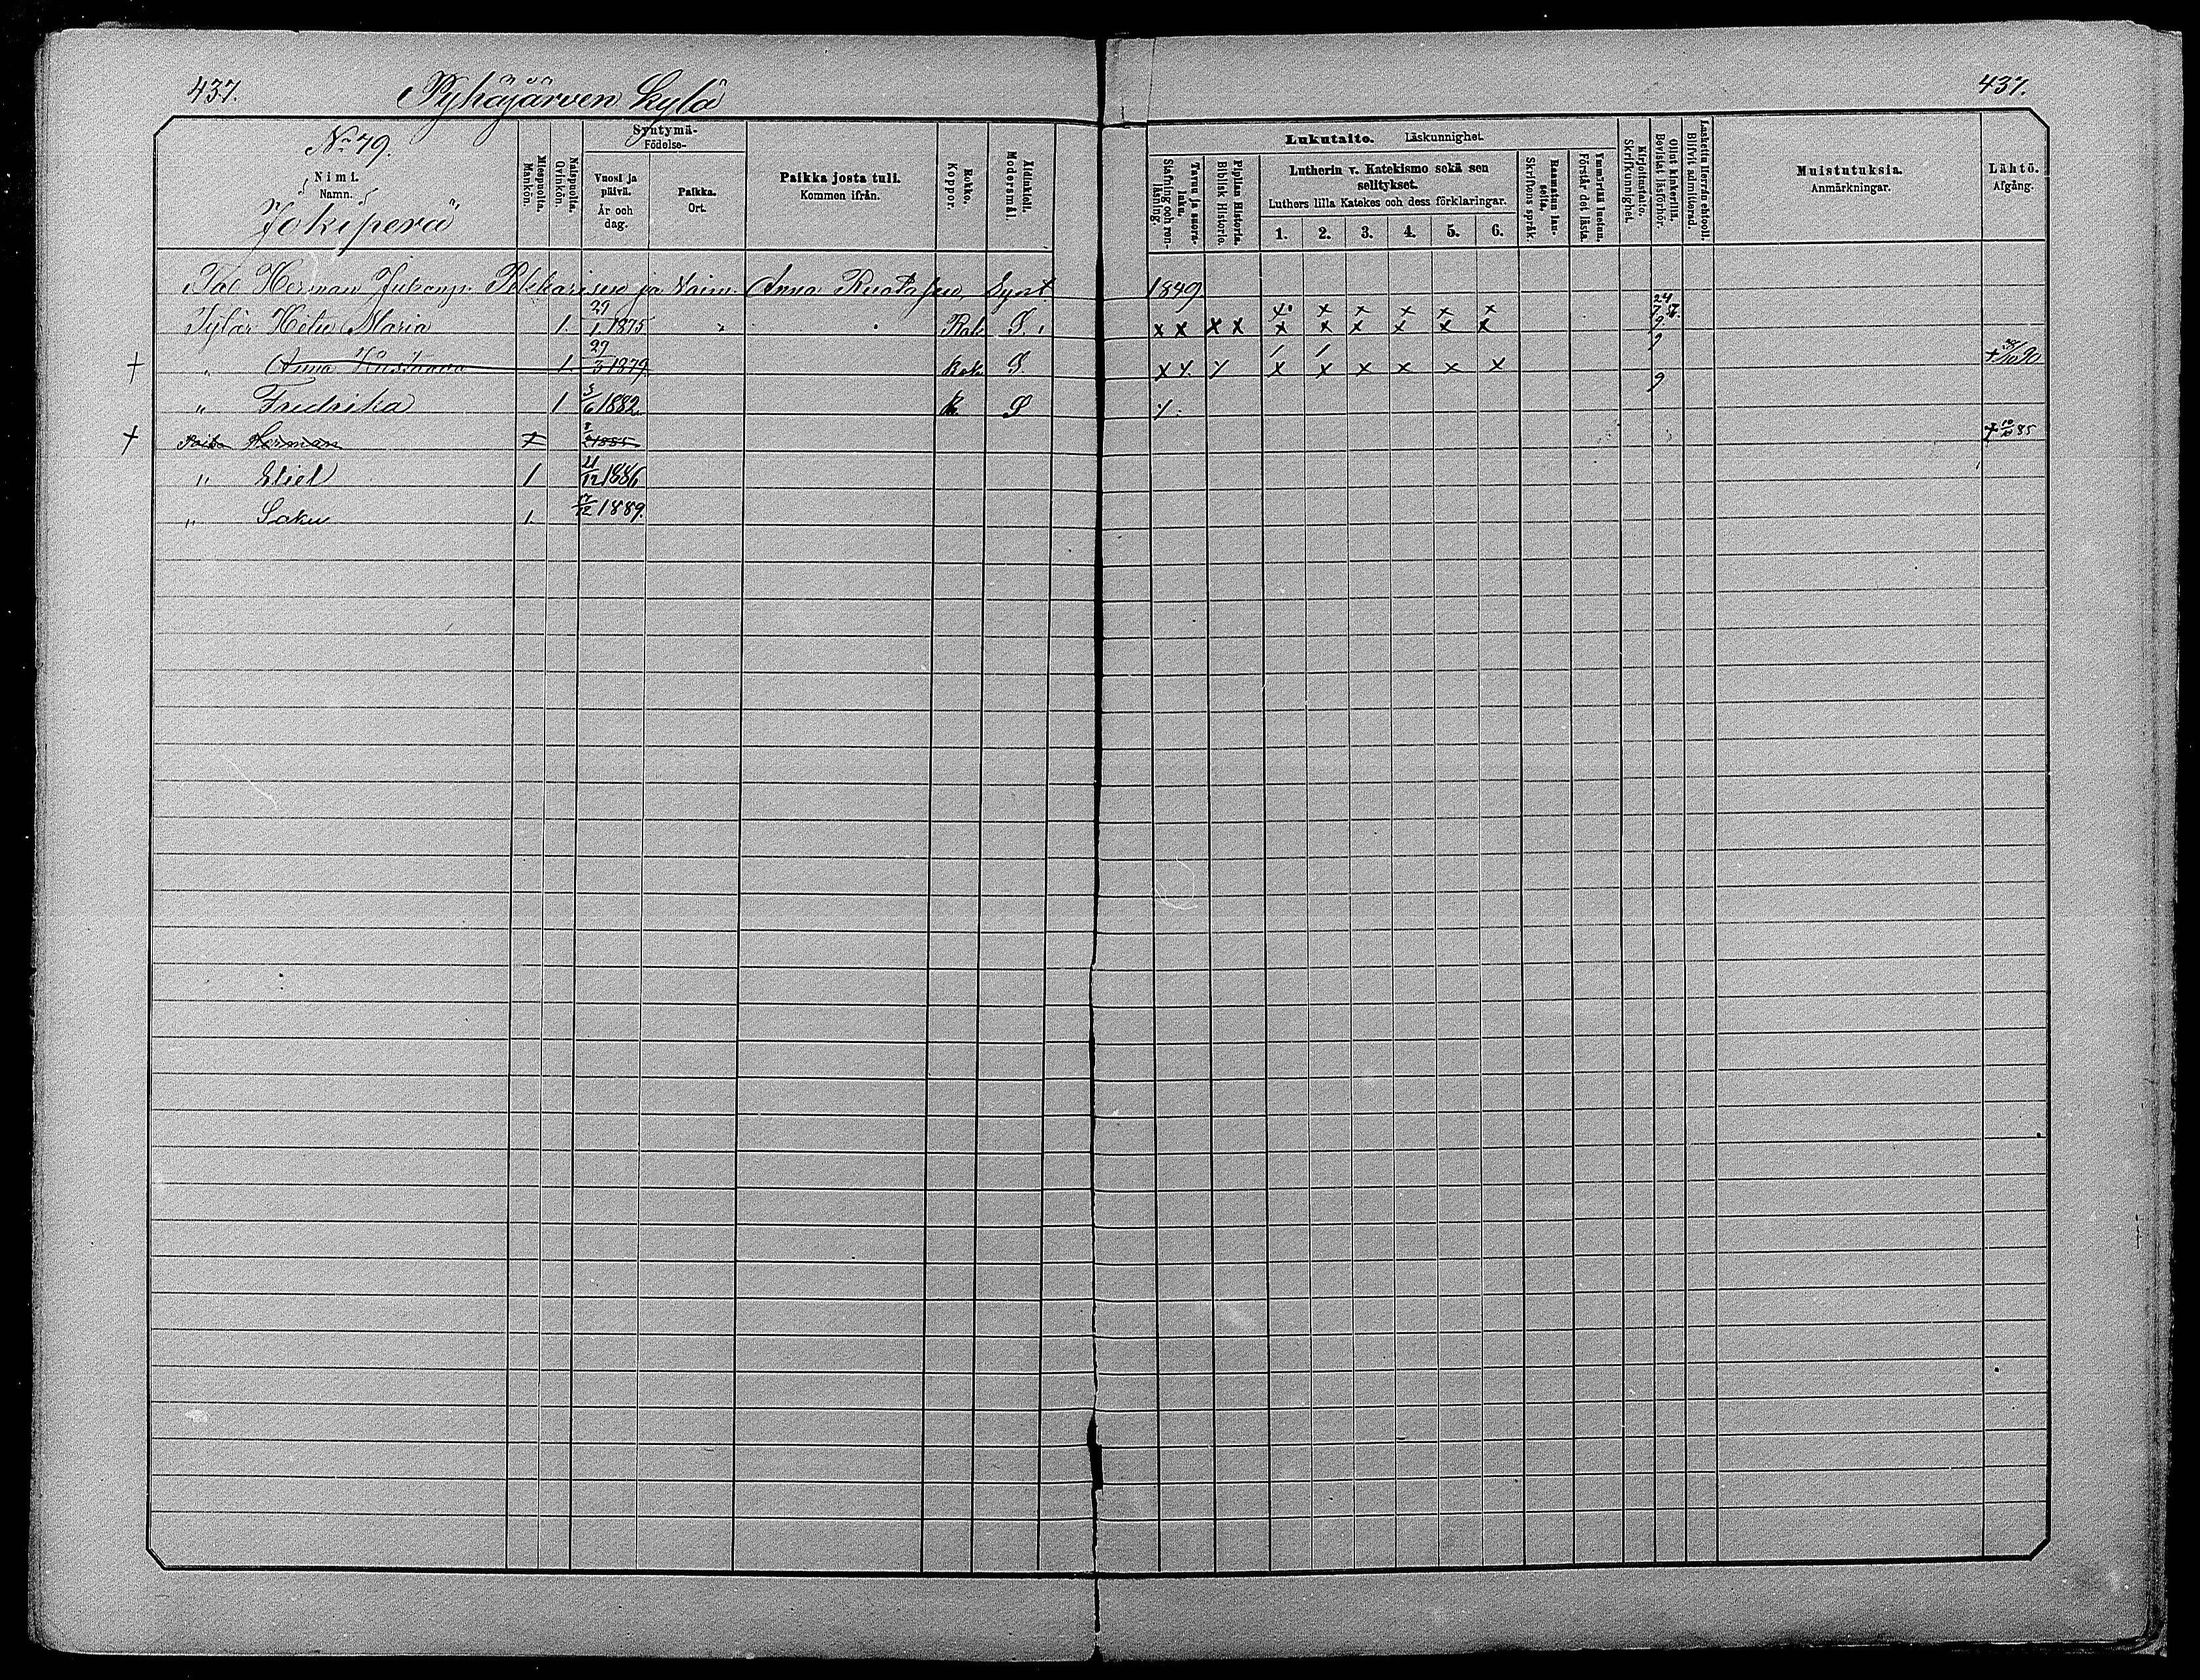 437.
Pyhäjärven kylä
437.
No 79.
Nimi.
Namn.
Jokiperä
Miespuolia.
Mankön.
Naispuolia.
Qvinkön.
Syntymä-
Födelse-
Vuosi ja päivä.
År och dag.
Paikka.
Ort.
Paikka josta tuli.
Kommen ifrån.
Rokko.
Koppor.
Äidinkieli.
Modersmål.
Lukutaito. Läskunnighet.
Tavuu ja suora-luku.
Stafning och ren-läsning.
Piplian Historia.
Biblisk Historie.
Lutherin v. Katekismo sekä sen selitykset.
Luthers lilla Katekes och dess förklaringar.
1. 2. 3. 4. 5. 6.
Raamatun lau-seita.
Skriftens språk.
Ymmärtää luetun.
Förstår det lästa.
Kirjoitustaito.
Skrifkunnighet.
Ollut kinkerillä.
Bevistat läsförhör.
Laskettu Herran ehtooll.
Blifvit admitterad.
Muistutuksia.
Anmärkningar.
Lähtö.
Afgång.
Tal Herman ja Vaim. Anna Synt. 1849
Tytär Hetu Maria 1. 27/1 1875 Rok S. x x x x x x x x x x
† " Anna 1. 27/3 1879 Rok S. x x x x x x x x
" Fredrika 1 5/6 1882 S
† Poika Herman 1885 † 85
" Eliel 1 21/12 1886
" Saku 1. 17/12 1889.